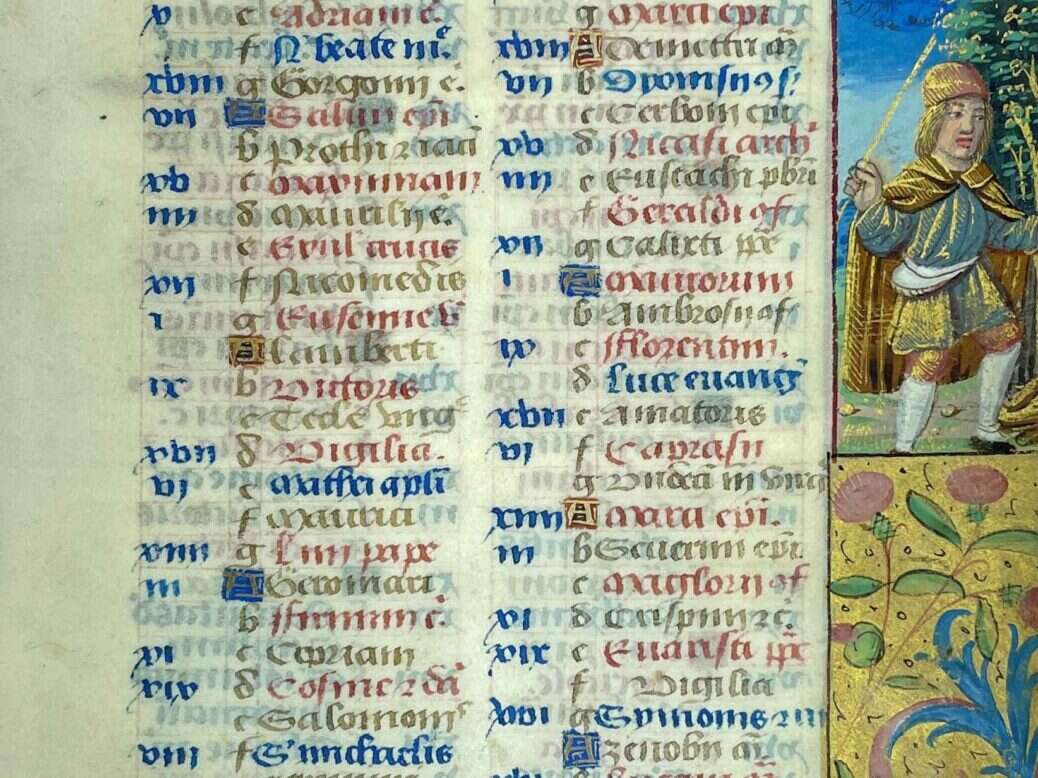 v e Adriani c.
f N. beate mē
xviii g Gorgonij c.
vii A Saluii epi
b Prothi ⁊ iacī
xv c Maximiani
iiii d Maurilij c.
e Exul. crucis
xii f Nicomedis
i g Eufemie v̄
A Lamberti
ix b Victoris
c Tecle virgͥ
xvii d Vigilia.
vi e Mathei apłi
f Mauricii
xiiii g Lini pape
iii A Geremari
b Firmini c.
xi c Cipriani
xix d Cosme ⁊ dā
e Salomonis
viii f S. michaelis
g Marci epi
xviii A Demetrii m̄
vii b Dyonisii 9 s.
c Cerbonii epi
xv d Nicasi arch'
iiii e Eustachi pbri
f Geraldi 9f
xii g Calixti pp̄e
i A Maurorum
b Ambrosii 9f
ix c Florentini.
d Luce evangͥ
xvii e Amatoris
vi f Caprasii
g Undecī m̄ virgͥ
xiiii A Marci epi.
iii b Severini epi
c Magloríj 9f
xi d Crispini ⁊ c.
xix e Evaristi pp̄e
f Vigilia
xvi g Symonis ⁊ iu
A Zenobii m̄